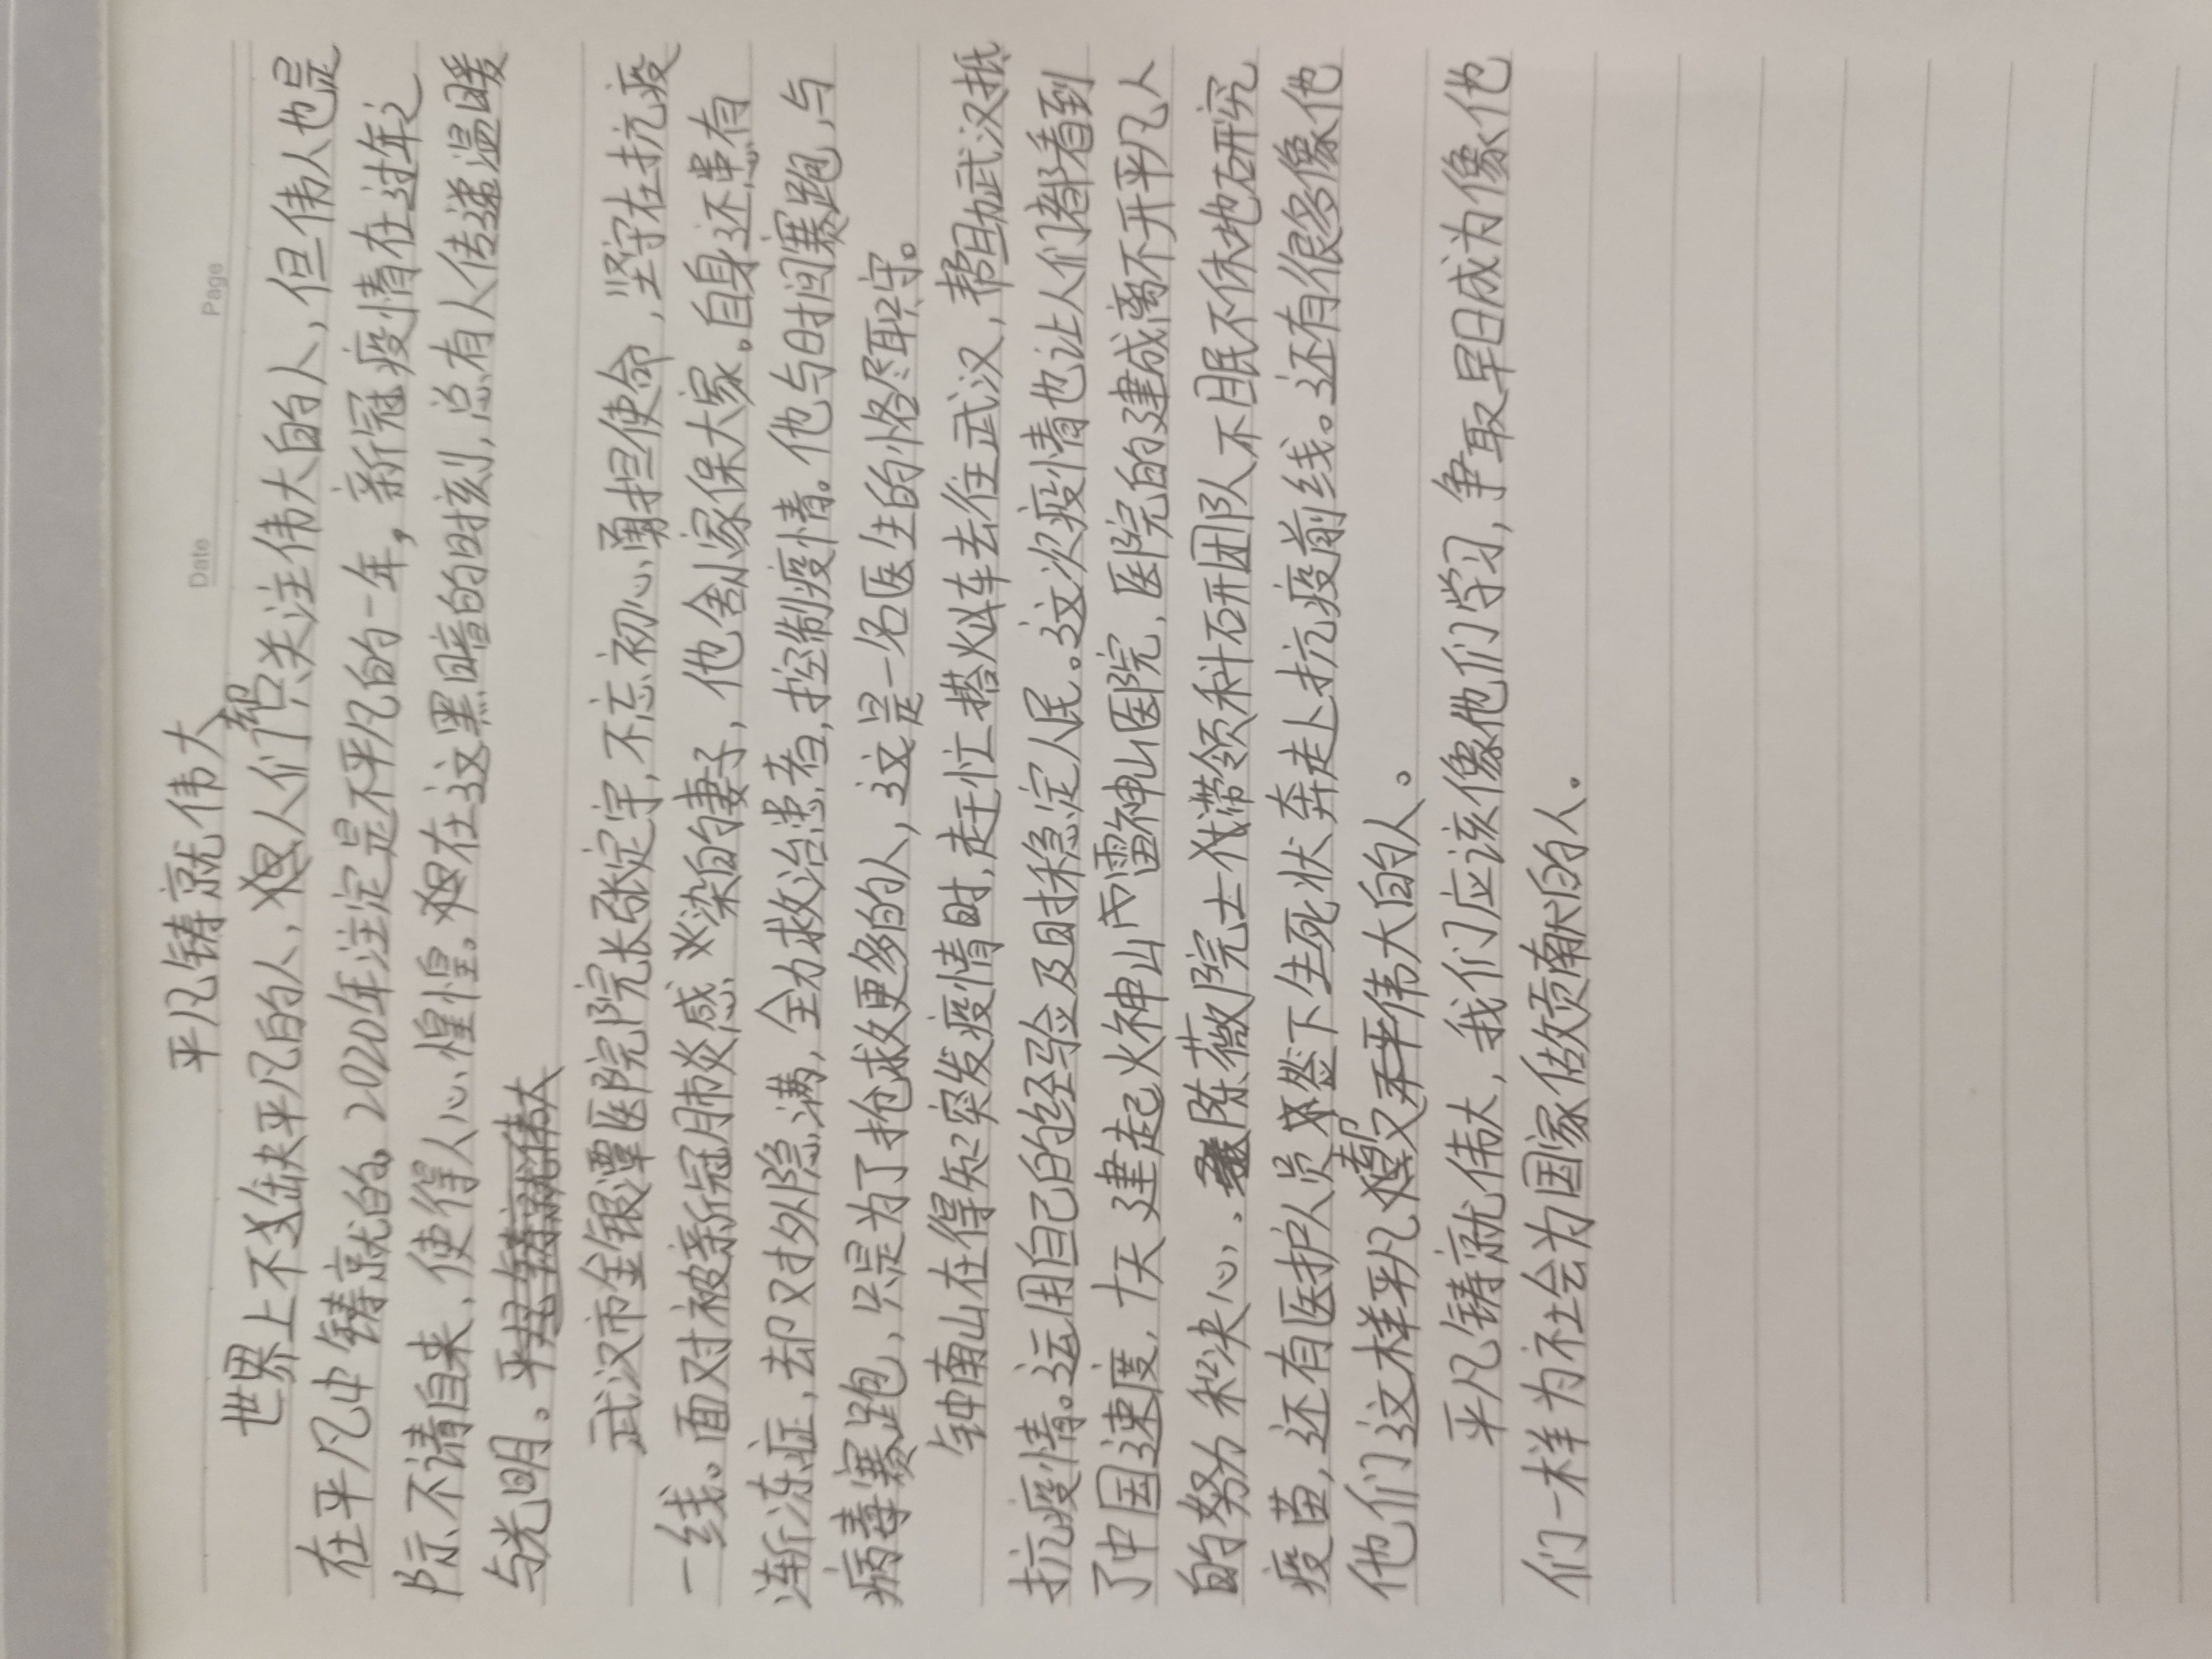 Date
Page
平凡铸就伟大
世界上不缺平凡的人，人们都只关注伟大的人，但伟人也是
在平凡中铸就的。2020年注定是不平凡的一年，新冠疫情在过年之
际不请自来，使得人心惶惶。在这黑暗的时刻，总有人传递温暖
与光明。
武汉市金银潭医院院长张定宇，不忘初心勇担使命，坚守在抗疫
一线。面对被新冠肺炎感染的妻子，他舍小家保大家。自身还患有
渐冻症，却对外隐满，全力救治患者，控制疫情。他与时间赛跑，与
病毒赛跑，只是为了抢救更多的人，这是一名医生的恪尽职守。
钟南山在得知突发疫情时，赶忙搭火车去往武汉，帮助武汉抵
抗疫情。运用自己的经验及时稳定人民。这次疫情也让人们都看到
了中国速度，十天建起火神山雷神山医院，医院的建成离不开平凡人
的努力和决心，陈薇院士带领科研团队不眠不休地研究
疫苗，还有医护人员签下生死状奔赴抗疫前线。还有很多像他
他们这样平凡却又伟大的人。
平凡铸就伟大，我们应该像他们学习，争取早日成为像他
们一样为社会为国家做贡献的人。